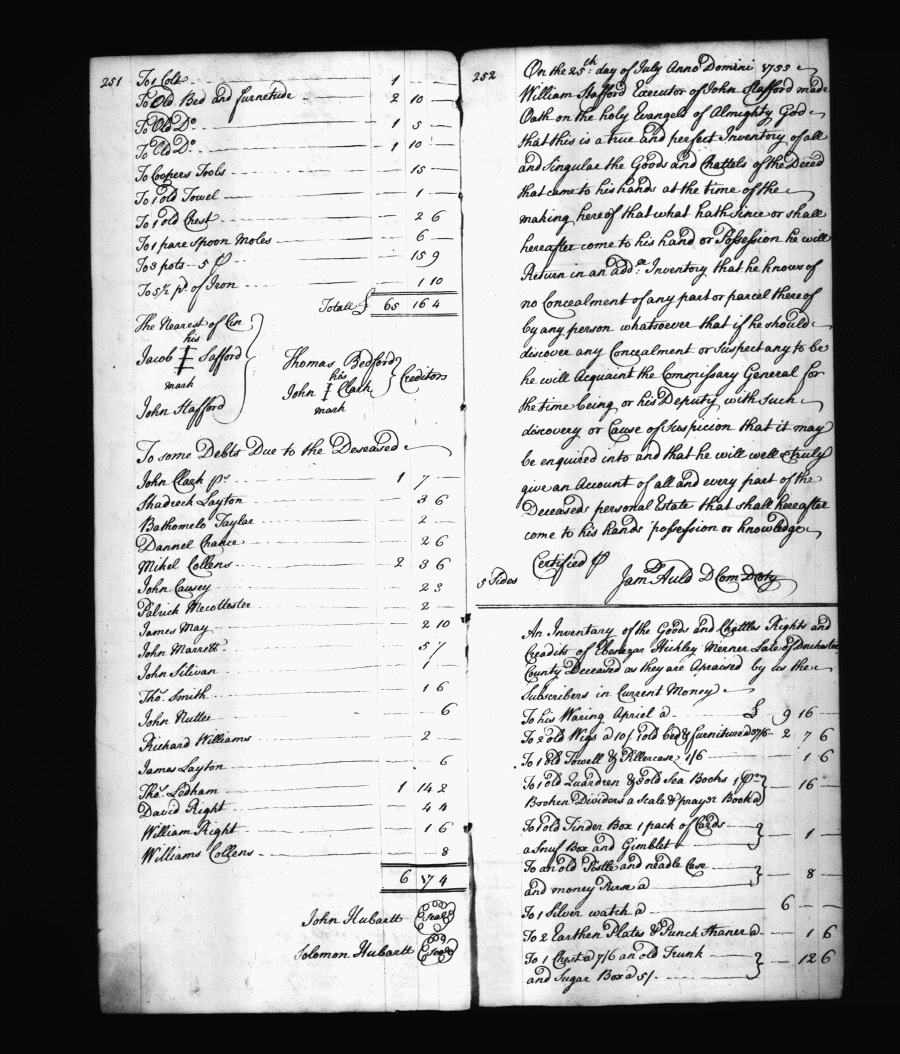 251
To 1 Colt 1
To Old Bed and furnetude 2 10
To Old Do 1 5
To Old Do 1 10
To Coopers Tools 15
To 1 old Towel 1
To 1 old Chest 2 6
To 1 pare Spoon Moles 6
To 3 pots 5 15 9
To 5½ pd. of Iron 1 10
Totall 65 16 4
The Nearest of Cin
his
Jacob I Safford
mark
John Stafford
Thomas Bedford
his
John I Clark
mark
Creditors
To some Debts Due to the Deseased
John Clark pr 1 7
Shadreck Layton 3 6
Bathomelo Taylar 2
Dannel Chance 2 6
Mikel Collens 2 3 6
John Causey 2 3
Patrick Mecollester 2
James May 2 10
John Marrett 5 7
John Silivan 1
Thos. Smith 1 6
John Nutter 6
Richard Williams 2
James Layton 6
Thos. Ledham 1 14 2
David Right 4 4
William Right 1 6
Williams Collens 8
6 17 4
John Hubartt Seal
Solomon Hubartt Seal
252
On the 25th day of July Anno Domini 1755
William Stafford Executor of John Stafford made
Oath on the holy Evangels of Almighty God
that this is a true and perfect Inventory of all
and Singular the Goods and Chattels of the Deced
that came to his hands at the time of the
making hereof that what hath Since or shall
hereafter come to his hand or Possession he will
Return in an addal Inventory that he knows of
no Concealment of any part or parcel thereof
by any person whatsoever that if he should
discover any Concealment or Suspect any to be
he will Acquaint the Commissary General for
the time being or his Deputy with Such
discovery or Cause of Suspicion that it may
be enquired into and that he will well & truly
give an Account of all and every part of the
Deceased personal Estate that shall hereafter
come to his hands possession or knowledge
Certified P
3 Sides
Jams Auld D Com Dcty
An Inventary of the Goods and Chattles Rights and
Creadits of Ebenezar Hickley Merner Late of Dorchester
County Deceased as they are Apraised by us the
Subscribers in Current Money
To his Waring Apriel a £ 9 16
To 2 old Wigs a 10/ 1 old bed & furniture a 37/6 2 7 6
To 1 old Towell & Pillercase 1/6 1 6
To 1 old Quardren & 3 old Sea Books 1 pr
Brooken Dividers a Scale & prayer Book a 16
To 1 old Tinder Box 1 pack of Cards
a Snuf Box and Gimblet 1
To an old Pistle and neadle Case
and money Purse a 8
To 1 Silver watch a 6
To 2 Earthen Plates & Punch Strainer a 1 6
To 1 Chest a 7/6 an old Trunk
and Sugar Box a 5/ 12 6